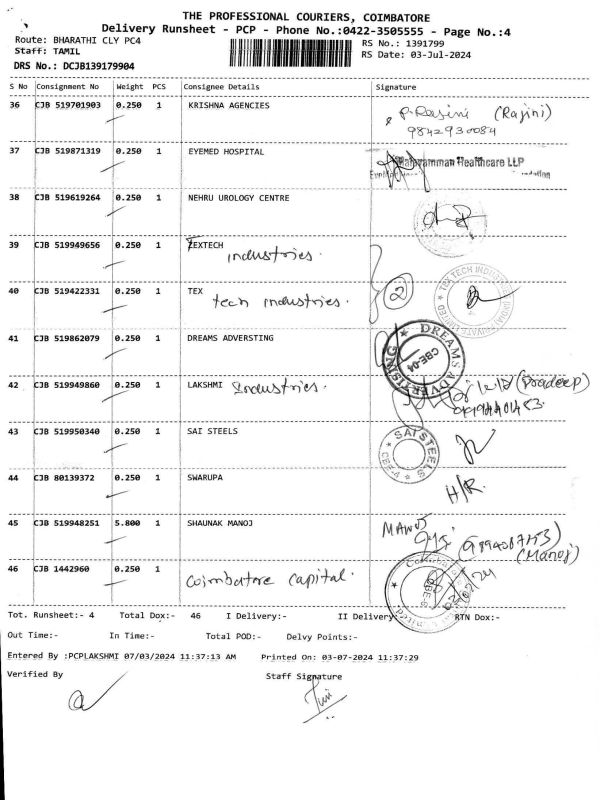 THE PROFESSIONAL COURIERS, COIMBATORE
Delivery Runsheet - PCP - Phone No.:0422-3505555 - Page No.:4
Route: BHARATHI CLY PC4 RS No.: 1391799
Staff: TAMIL RS Date: 03-Jul-2024
DRS No.: DCJB139179904
S No Consignment No Weight PCS Consignee Details Signature
36 CJB 519701903 0.250 1 KRISHNA AGENCIES P.Rasini (Rajini)
9842930084
37 CJB 519871319 0.250 1 EYEMED HOSPITAL
Healthcare LLP
38 CJB 519619264 0.250 1 NEHRU UROLOGY CENTRE
39 CJB 519949656 0.250 1 TEXTECH
industries.
40 CJB 519422331 0.250 1 TEX 2 TEX TECH INDUSTRIES (INDIA) PRIVATE LIMITED
tech industries.
41 CJB 519862079 0.250 1 DREAMS ADVERSTING DREAMS ADVERTISING
CBE-04
42 CJB 519949860 0.250 1 LAKSHMI Industries. (Pradeep)
43 CJB 519950340 0.250 1 SAI STEELS SAI STEELS
CBE-4
44 CJB 80139372 0.250 1 SWARUPA H/R.
45 CJB 519948251 5.800 1 SHAUNAK MANOJ MANOJ
(Manoj)
46 CJB 1442960 0.250 1 Coimbatore capital.
Tot. Runsheet:- 4 Total Dox:- 46 I Delivery:- II Delivery RTN Dox:-
Out Time:- In Time:- Total POD:- Delvy Points:-
Entered By :PCPLAKSHMI 07/03/2024 11:37:13 AM Printed On: 03-07-2024 11:37:29
Verified By Staff Signature